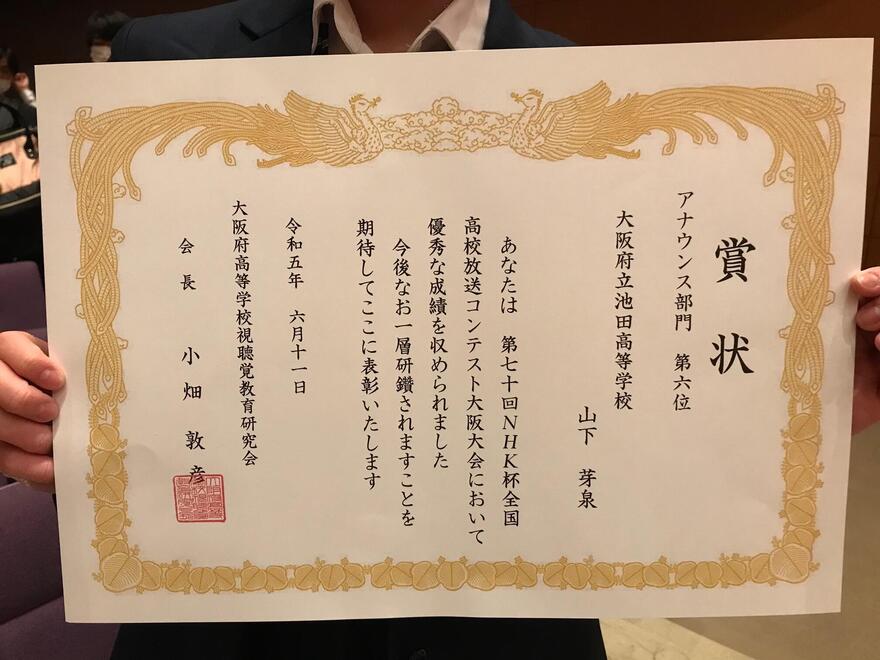 賞状
アナウンス部門 第六位
大阪府立池田高等学校
山下 芽泉
あなたは 第七十回NHK杯全国
高校放送コンテスト大阪大会において
優秀な成績を収められました
今後なお一層研鑽されますことを
期待してここに表彰いたします
令和五年 六月十一日
大阪府高等学校視聴覚教育研究会
会長 小畑 敦彦